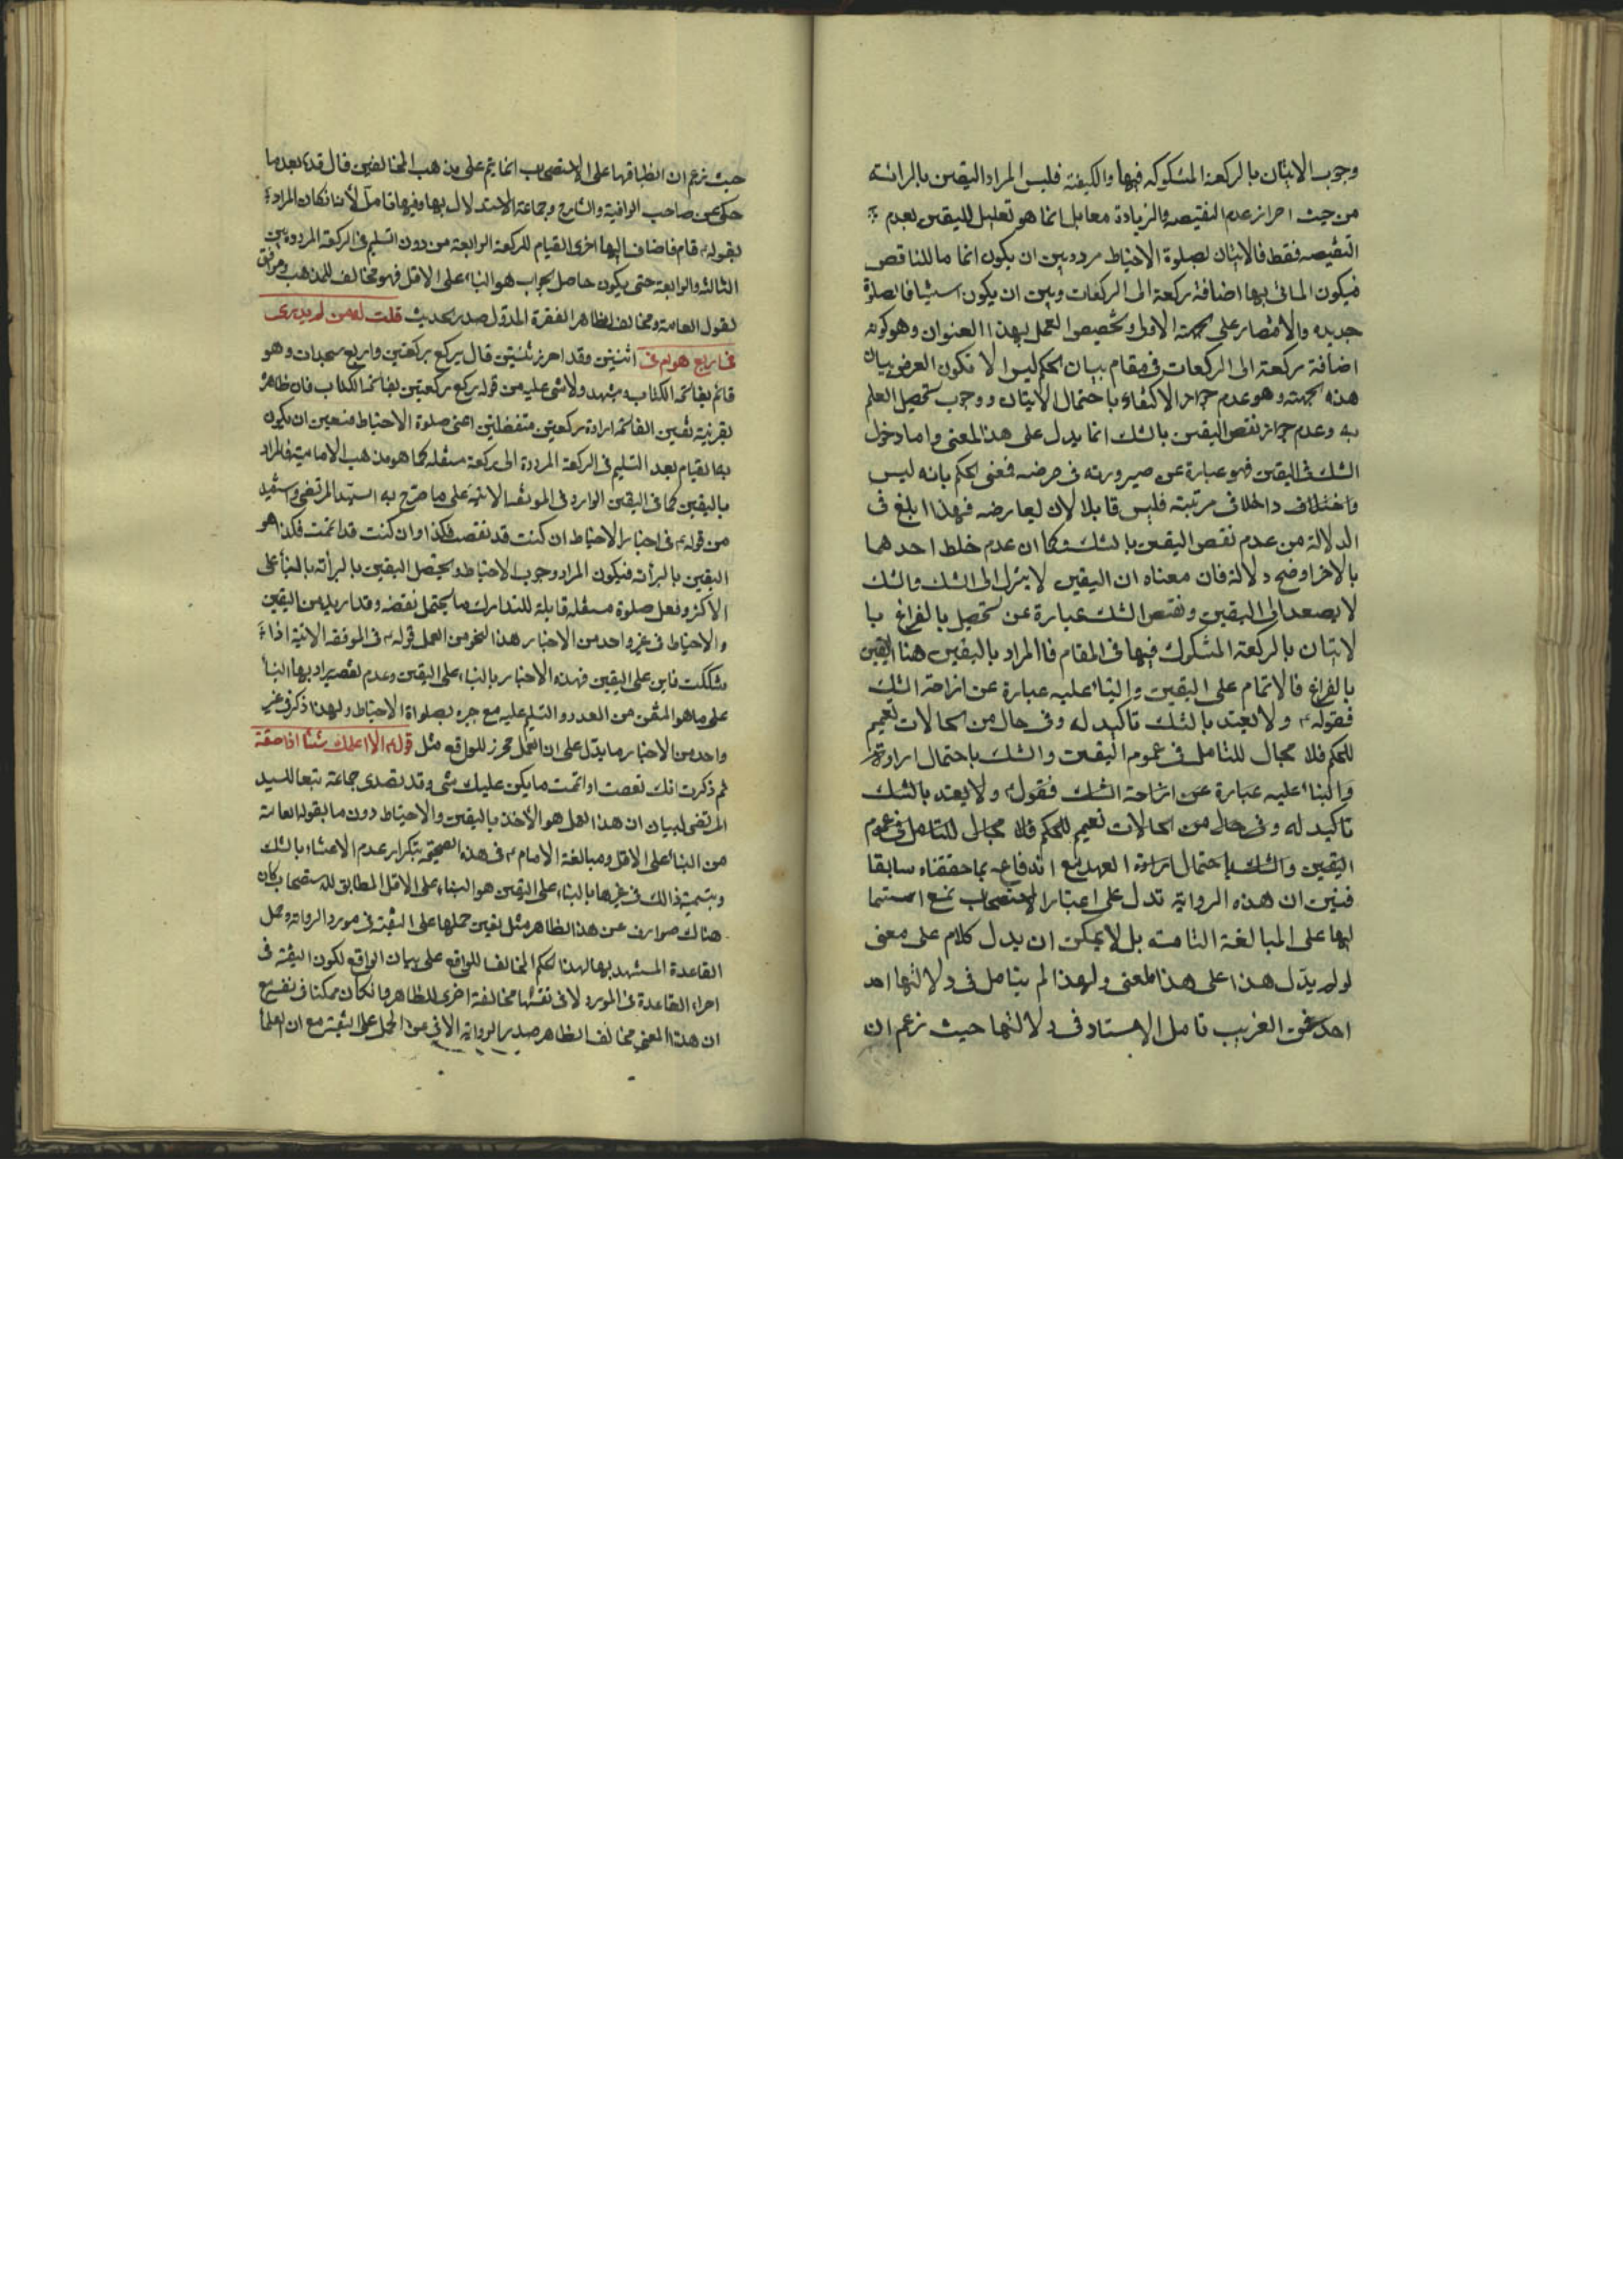 وجوب الاتيان بالركعة المشكوكه فيها والكيفته فليس المراد اليقين بالرائته
من حيث احراز عدم النقيصه والزيادة معا بل انما هو تعليل لليقين بعدم
النقيصه فقط فالاتيان لصلوة الاحتياط مردد بين ان يكون اتماما للناقص
فيكون الماتى بها اضافة ركعة الى الركعات وبين ان يكون استينافا لصلوة
جديده والاقتصار على الجهة الاولى وتخصيص العمل بهذا العنوان وهو كونه
اضافة ركعة الى الركعات فى مقام بيان الحكم ليس الا لكون الغرض بيان
هذه الجهته وهو عدم جواز الاكتفاء باحتمال الاتيان ووجوب تحصيل العلم
به وعدم جواز نقص اليقين بالشك انما يدل على هذا المعنى واما دخول
الشك فى اليقين فهو عبارة عن صيرورته فى عرضه فمعنى الحكم بانه ليس
داخلا فى مرتبته فليس قابلا لان يعارضه فهذا ابلغ فى
الدلالة من عدم نقص اليقين بالشك وكما ان عدم خلط احدهما
بالاخر اوضح دلالة فان معناه ان اليقين لا ينزل الى الشك والشك
لا يصعد الى اليقين ونقص الشك عبارة عن تحصيل بالفراغ با
لاتيان بالركعة المشكوك فيها فى المقام فاالمراد باليقين هنا اليقين
بالفراغ فالاتمام على اليقين والبناء عليه عبارة عن ازاحة الشك
فقوله ولا يعتد بالشك تاكيد له وفى حال من الحالات تعميم
للحكم فلا مجال للتامل فى عموم اليقين والشك باحتمال ارادة
والبناء عليه عبارة عن ازاحة الشك فقوله ولا يعتد بالشك
تاكيد له وفى حال من الحالات تعميم للحكم فلا مجال للتامل فى عموم
اليقين والشك باحتمال ارادة العهد مع اندفاعه بما حققناه سابقا
فتبين ان هذه الرواية تدل على اعتبار الاستصحاب مع اشتما
لها على المبالغة التامته بل لا يمكن ان يدل كلام على معنى
لو لم يدل هذا على هذا المعنى ولهذا لم يتامل فى دلالتها احد
احد فمن الغريب تامل الاستاد فى دلالتها حيث زعم ان
حيث زعم ان انطباقها على الاستصحاب انما يتم على مذهب المخالفين قال قده بعد ما
حكى عن صاحب الوافية والشارح وجماعة الاستدلال بها وفيها تامل لأنا نكان المراد
بقوله قام فاضاف اليها اخرى القيام للركعة الرابعة من دون التسليم فى الركعة المردده بين
الثالثه والرابعة حتى يكون حاصل الجواب هو البناء على الاقل فهو مخالف للمذهب وموافق
لقول العامة ومخالف لظاهر الفقرة الاولى من صدر الحديث قلت له من لم يدرى
فى اربع هو ام فى اثنتين وقد احرز ثنتين قال يركع بركعتين واربع سجدات وهو
قائم بفاتحة الكتاب ويتشهد ولا شى عليه من قوله يركع بركعتين بفاتحة الكتاب فان ظاهره
بقرينة تعيين الفاتحة ارادة ركعتين منفصلتين اعنى صلوة الاحتياط فتعين ان يكون
به القيام بعد التسليم فى الركعة المرددة الى ركعة مستقله كما هو مذهب الامامية فالمراد
باليقين كما فى اليقين الوارد فى الموثقه الاتية على ما صرح به السيد المرتضى واستفيد
من قوله فى اخبار الاحتياط ان كنت قد نقصت فكذا وان كنت قد اتممت فكذا هو
اليقين بالبرأته فيكون المراد وجوب الاحتياط وتحصيل اليقين بالبرأته بالبناء على
الاكثر وفعل صلوة مستقله قابلة للتدارك ما يحتمل نقصه وقد اريد من اليقين
والاحتياط فى غير واحد من الاخبار هذا النحو من العمل قوله فى الموثقه الاتية اذا
شككت فابن على اليقين فهذه الاخبار بالبناء على اليقين وعدم نقضه يراد بها البناء
على ما هو المتقن من العدد والتسليم عليه مع جبره بصلواة الاحتياط ولهذا ذكر فى غير
واحد من الاخبار ما يدل على ان العمل محرز للواقع مثل قوله الا اعلمك شيئا اذا صنعته
ثم ذكرت انك نقصت او اتممت ما يكن عليك شى وقد تصدى جماعة تبعا للسيد
المرتضى لبيان ان هذا العمل هو الأخذ باليقين والاحتياط دون ما يقوله العامة
من البناء على الاقل ومبالغة الامام فى هذه الصحيحه بتكرار عدم الاعتناء بالشك
وبتسمية ذالك فى غيرها بالبناء على اليقين هو البناء على الاقل المطابق للاستصحاب كان
هناك صوارف عن هذا الظاهر مثل تعين حملها على التقية فى مورد الرواية وحمل
القاعدة المستشهد بها لهذا الحكم المخالف للواقع على بيان الواقع لكون التقية فى
اجراء القاعدة فى المورد لا فى نفسها مخالفة اخرى للظاهر وانكان ممكنا فى نفسه مع
ان هذا المعنى مخالف لظاهر صدر الرواية الابى عن الحمل على التقية مع ان العلماء